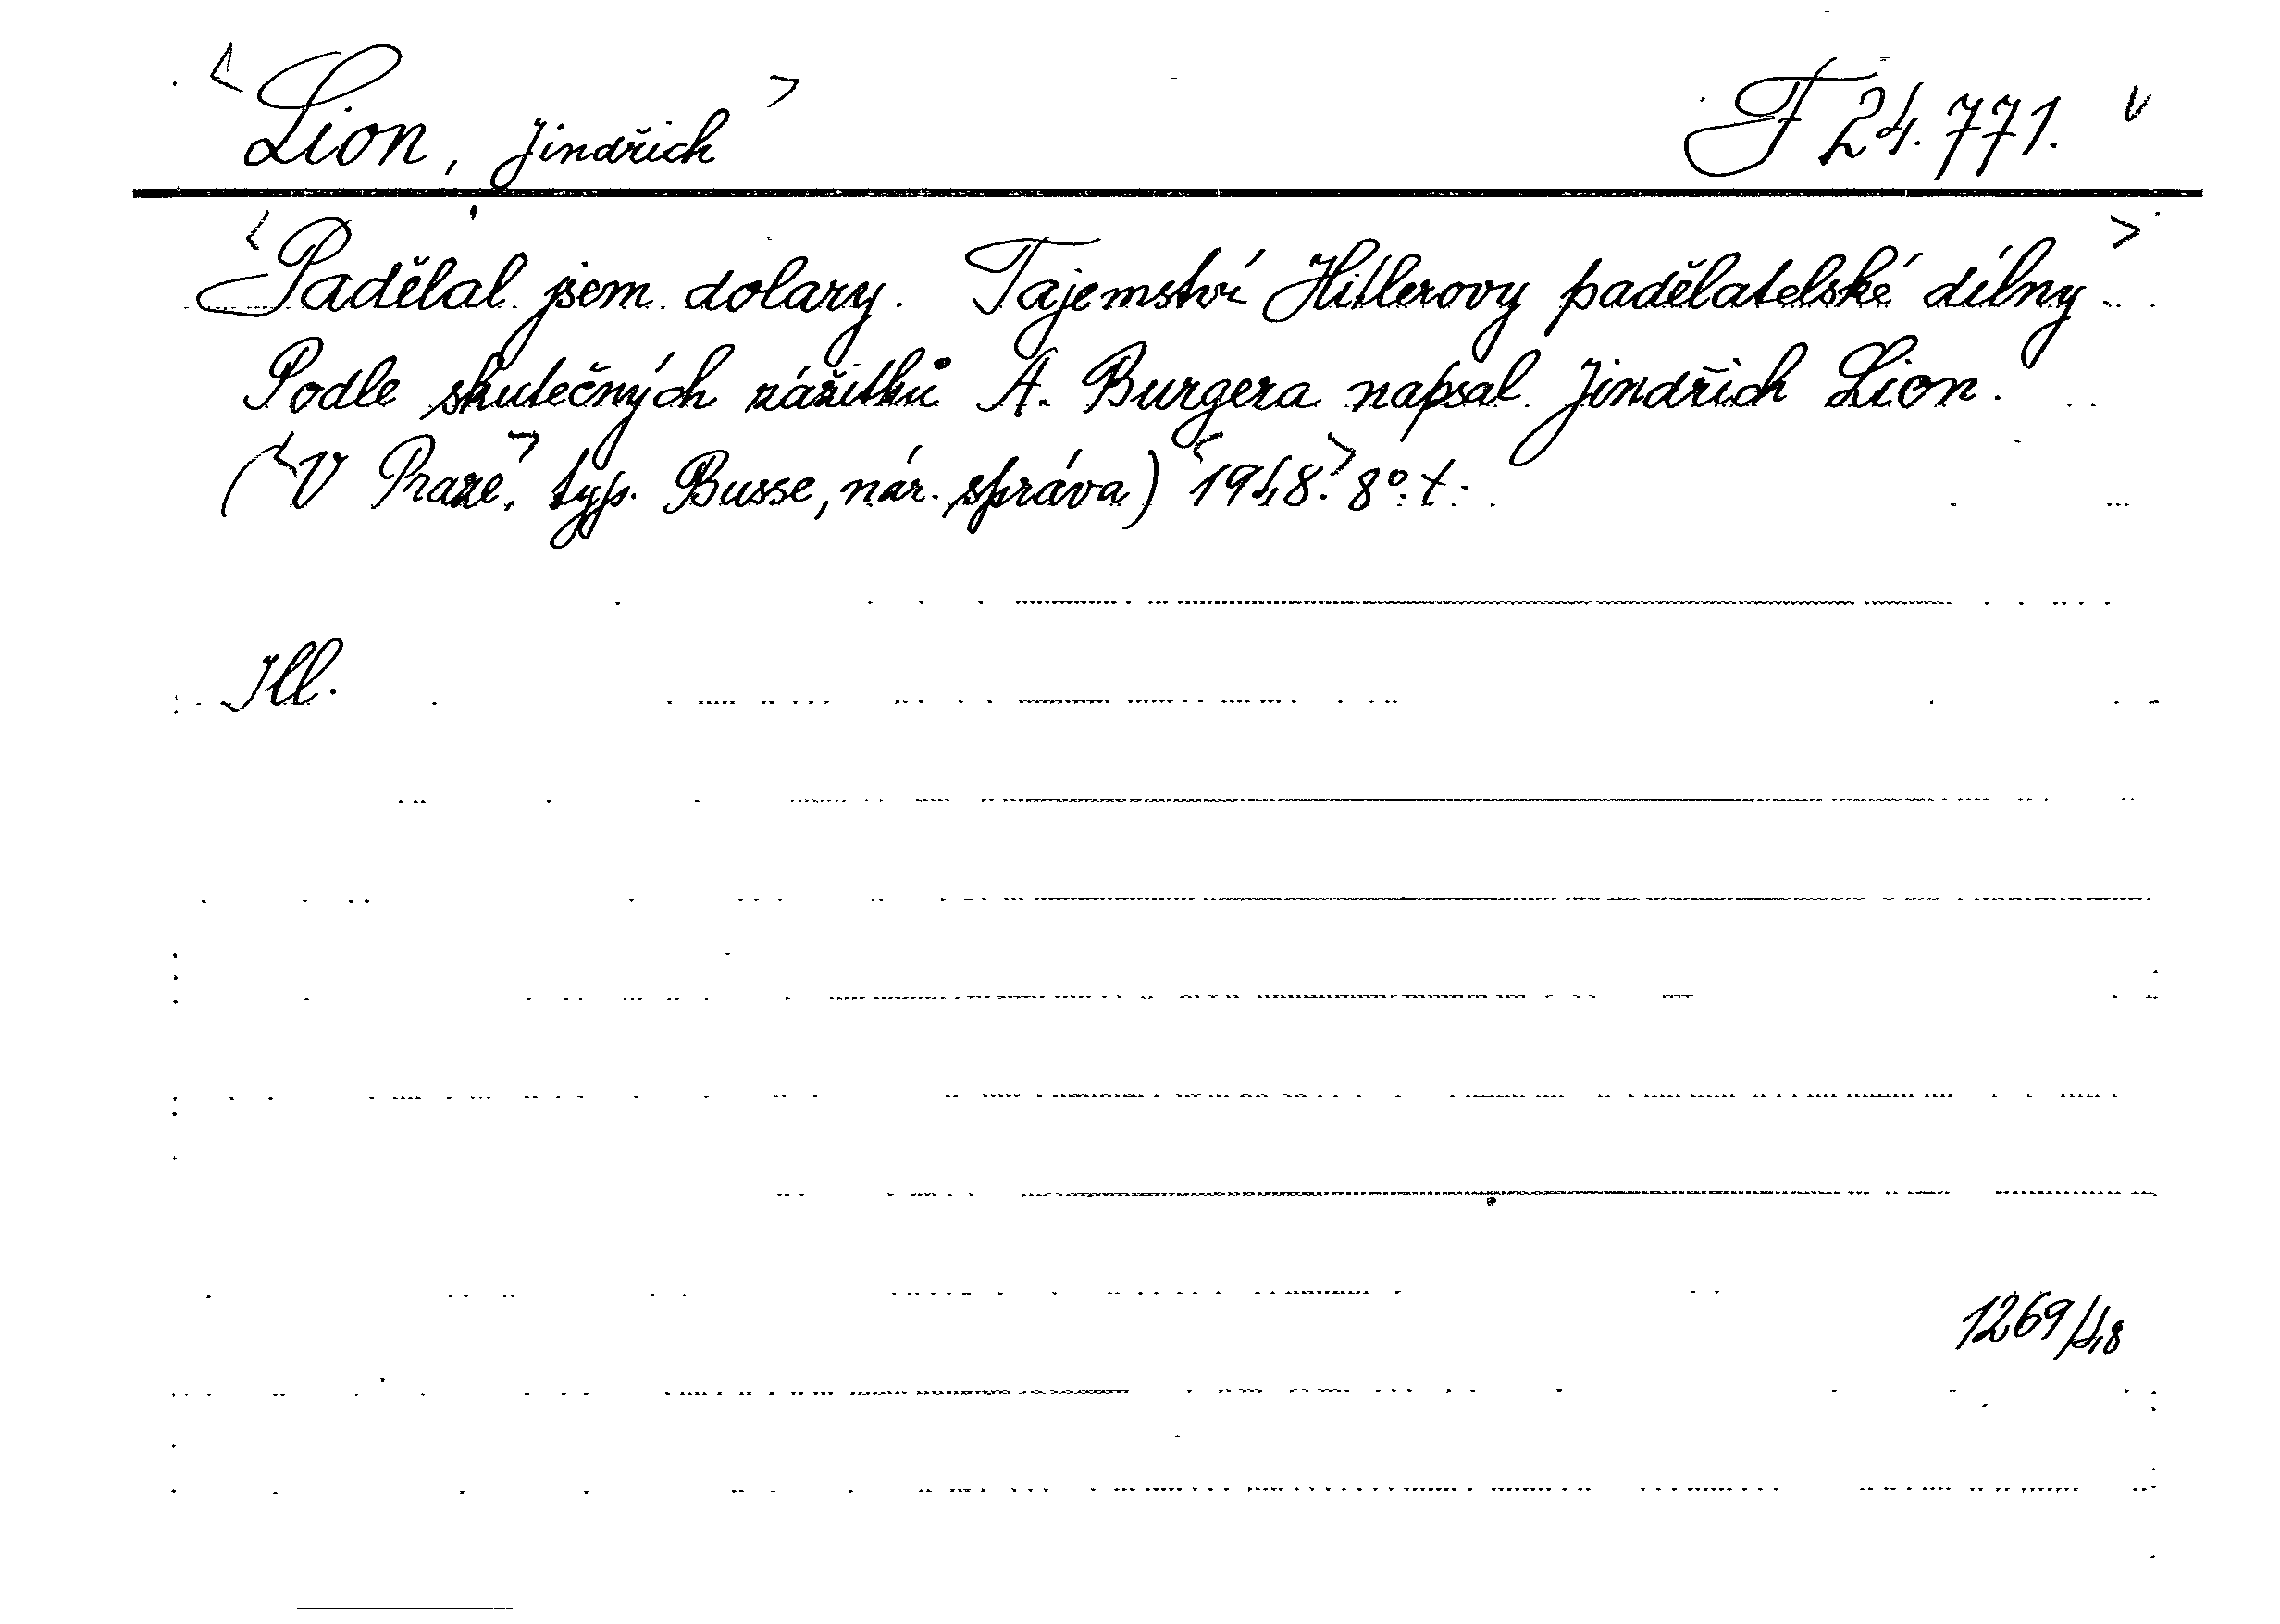 <Lion, Jindřich> F 24.771. v
<Padělal jsem dolary. Tajemství Hitlerovy padělatelské dílny>
Podle skutečných zážitků A. Burgera napsal Jindřich Lion.
(<V Praze>, typ. Busse, nár. správa) <1948.> 8°. t.
Ill.
1269/48